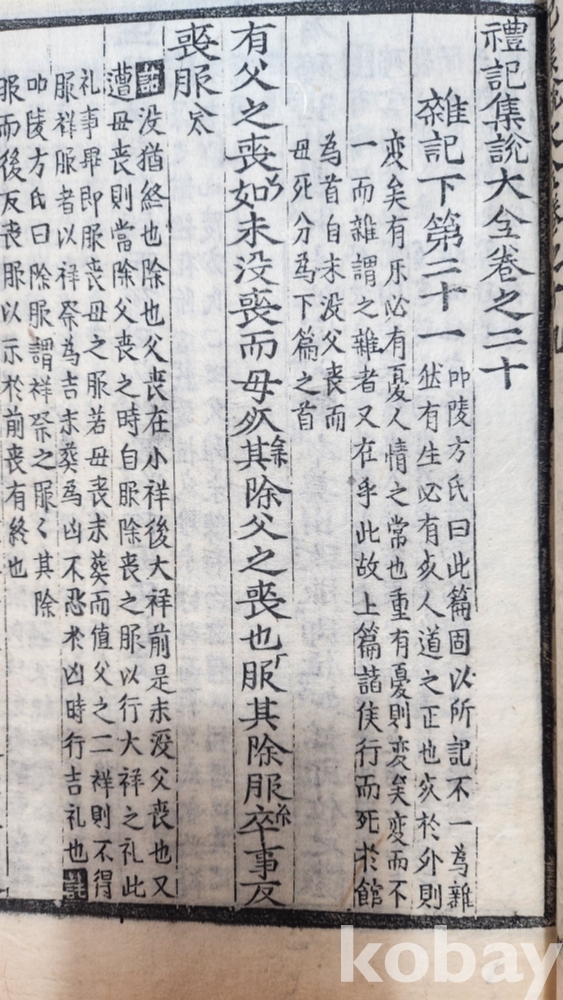 禮記集說大全卷之二十
雜記下第二十一
吅陵方氏曰此篇固以所記不一為雜
然有生必有死人道之正也死於外則
变矣有乐必有憂人情之常也重有憂則变矣变而不
一而雜謂之雜者又在乎此故上篇諸侯行而死於館
為首自未没父喪而
母死分為下篇之首
有父之喪如未没喪而母死其除父之喪也服其除服卒事反
喪服
没猶終也除也父喪在小祥後大祥前是未没父喪也又
遭母喪則當除父喪之時自服除喪之服以行大祥之礼此
礼事畢即服喪母之服若母喪未葬而值父之二祥則不得
服祥服者以祥祭為吉未葬為凶不忍於凶時行吉礼也
吅陵方氏曰除服謂祥祭之服〻其除
服而後反喪服以示於前喪有終也
kobay